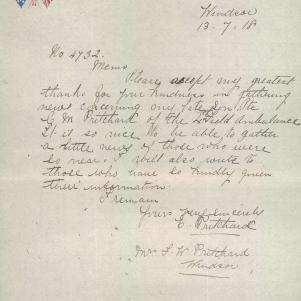 Windsor
13-7-18
No 4732.
Mems
Please accept my greatest
thanks for your kindness in gathering
news concerning my late son Pte
G M Pritchard of the 2 Field Ambulance
It is so nice to be able to gather
a little news of those who were
so near. I will also write to
those who have so kindly given
their information
I remain
Yours very sincerely
E Pritchard
Mrs S. W Pritchard
Windsor